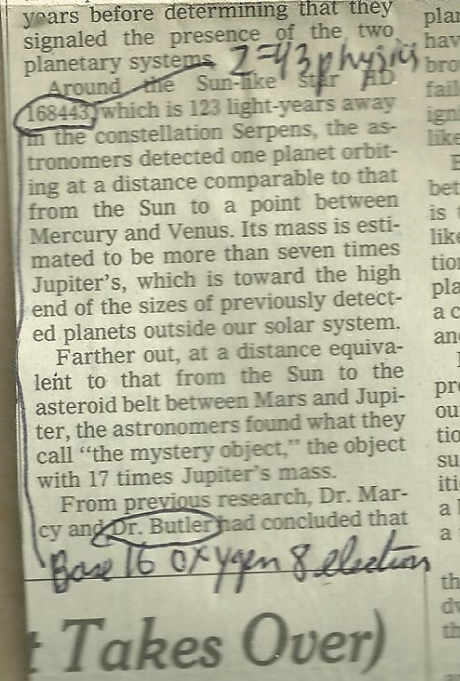 years before determining that they
signaled the presence of the two
planetary systems.
Around the Sun-like star HD
168443, which is 123 light-years away
in the constellation Serpens, the as-
tronomers detected one planet orbit-
ing at a distance comparable to that
from the Sun to a point between
Mercury and Venus. Its mass is esti-
mated to be more than seven times
Jupiter's, which is toward the high
end of the sizes of previously detect-
ed planets outside our solar system.
Farther out, at a distance equiva-
lent to that from the Sun to the
asteroid belt between Mars and Jupi-
ter, the astronomers found what they
call "the mystery object," the object
with 17 times Jupiter's mass.
From previous research, Dr. Mar-
cy and Dr. Butler had concluded that
physics
Base 16 oxygen 8
Takes Over)
plan
hav
bro
fail
igni
like
bet
is
like
tion
pla
a c
and
pro
out
tio
su
iti
a
a
th
dw
th